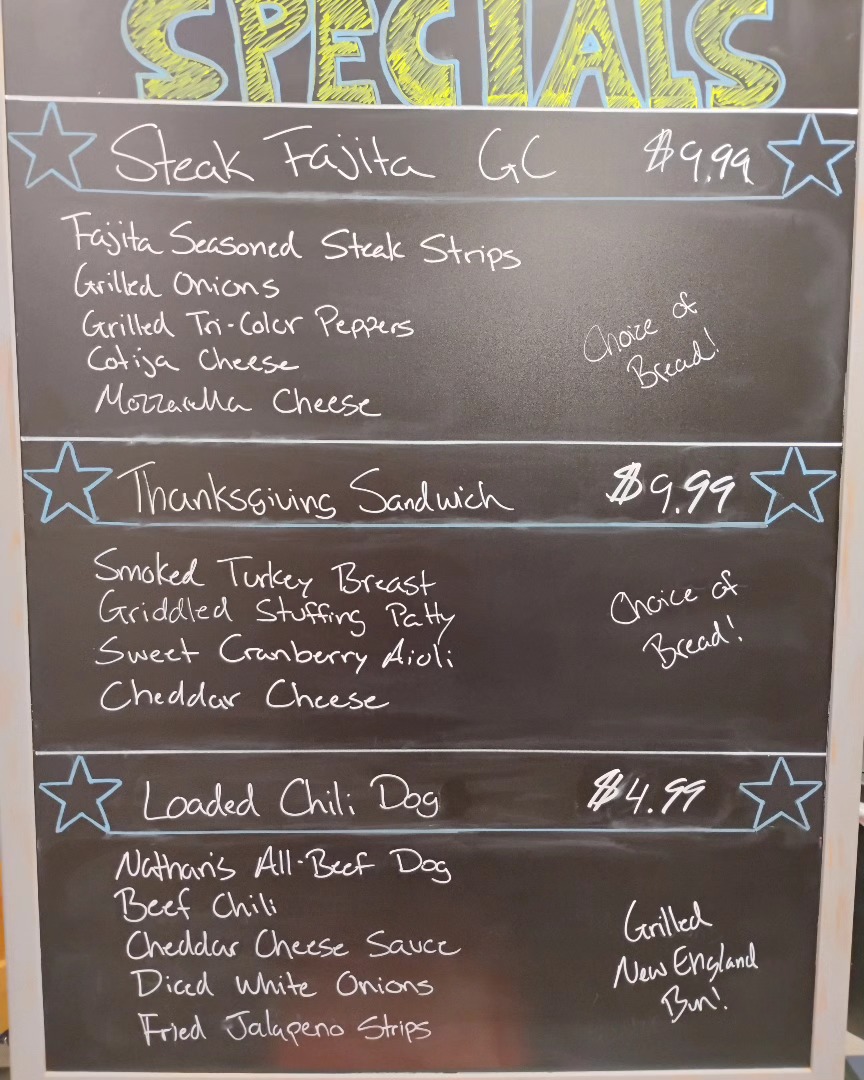 SPECIALS
Steak Fajita GC $9.99
Fajita Seasoned Steak Strips
Grilled Onions
Grilled Tri-Color Peppers
Cotija Cheese
Mozzarella Cheese
Choice of
Bread!
Thanksgiving Sandwich $9.99
Smoked Turkey Breast
Griddled Stuffing Patty
Sweet Cranberry Aioli
Cheddar Cheese
Choice of
Bread!
Loaded Chili Dog $4.99
Nathan's All-Beef Dog
Beef Chili
Cheddar Cheese Sauce
Diced White Onions
Fried Jalapeno Strips
Grilled
New England
Bun!